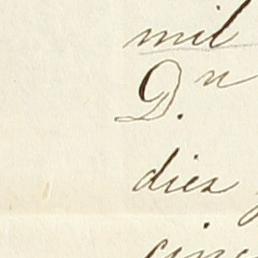 mil
D.n
diez
cinc